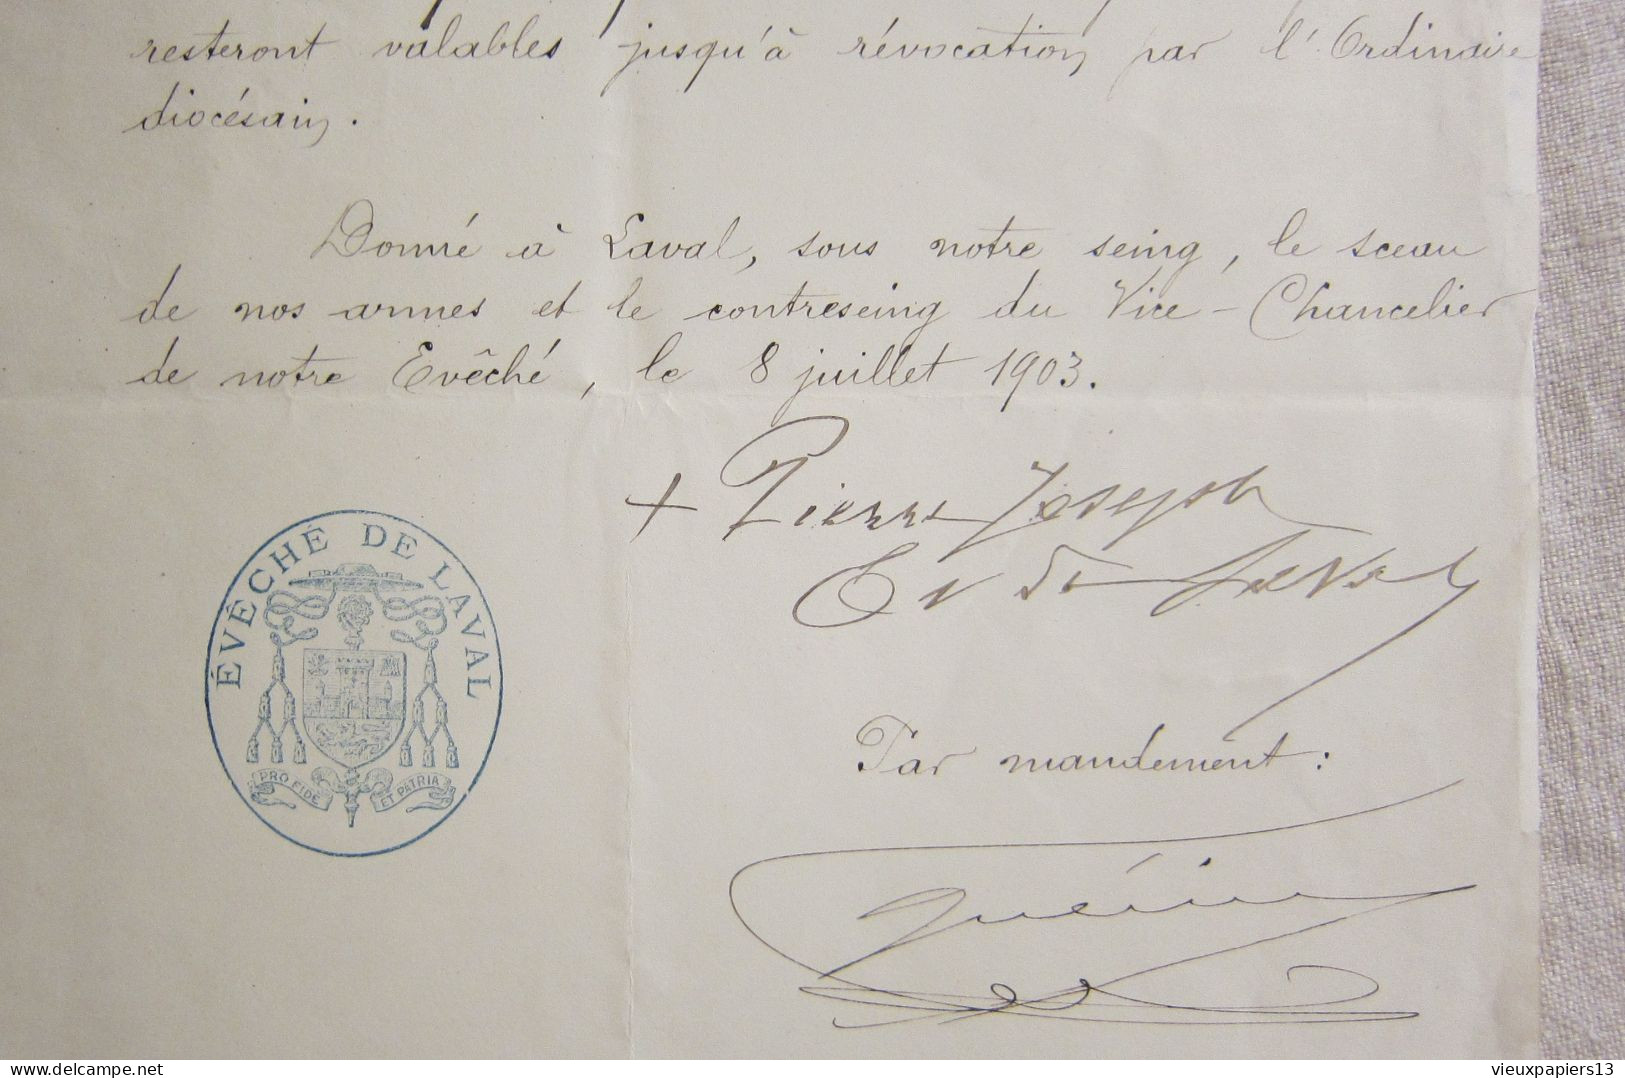 resteront valables jusqu'à révocation par l'Ordinaire
diocésain.
Donné à Laval, sous notre seing, le sceau
de nos armes et le contreseing du Vice-Chancelier
de notre Evêché, le 8 juillet 1903.
+ Pierre Joseph
Ev de Laval
ÉVÊCHÉ DE LAVAL
PRO FIDE ET PATRIA
Par mandement :
Guérin
vieuxpapiers13